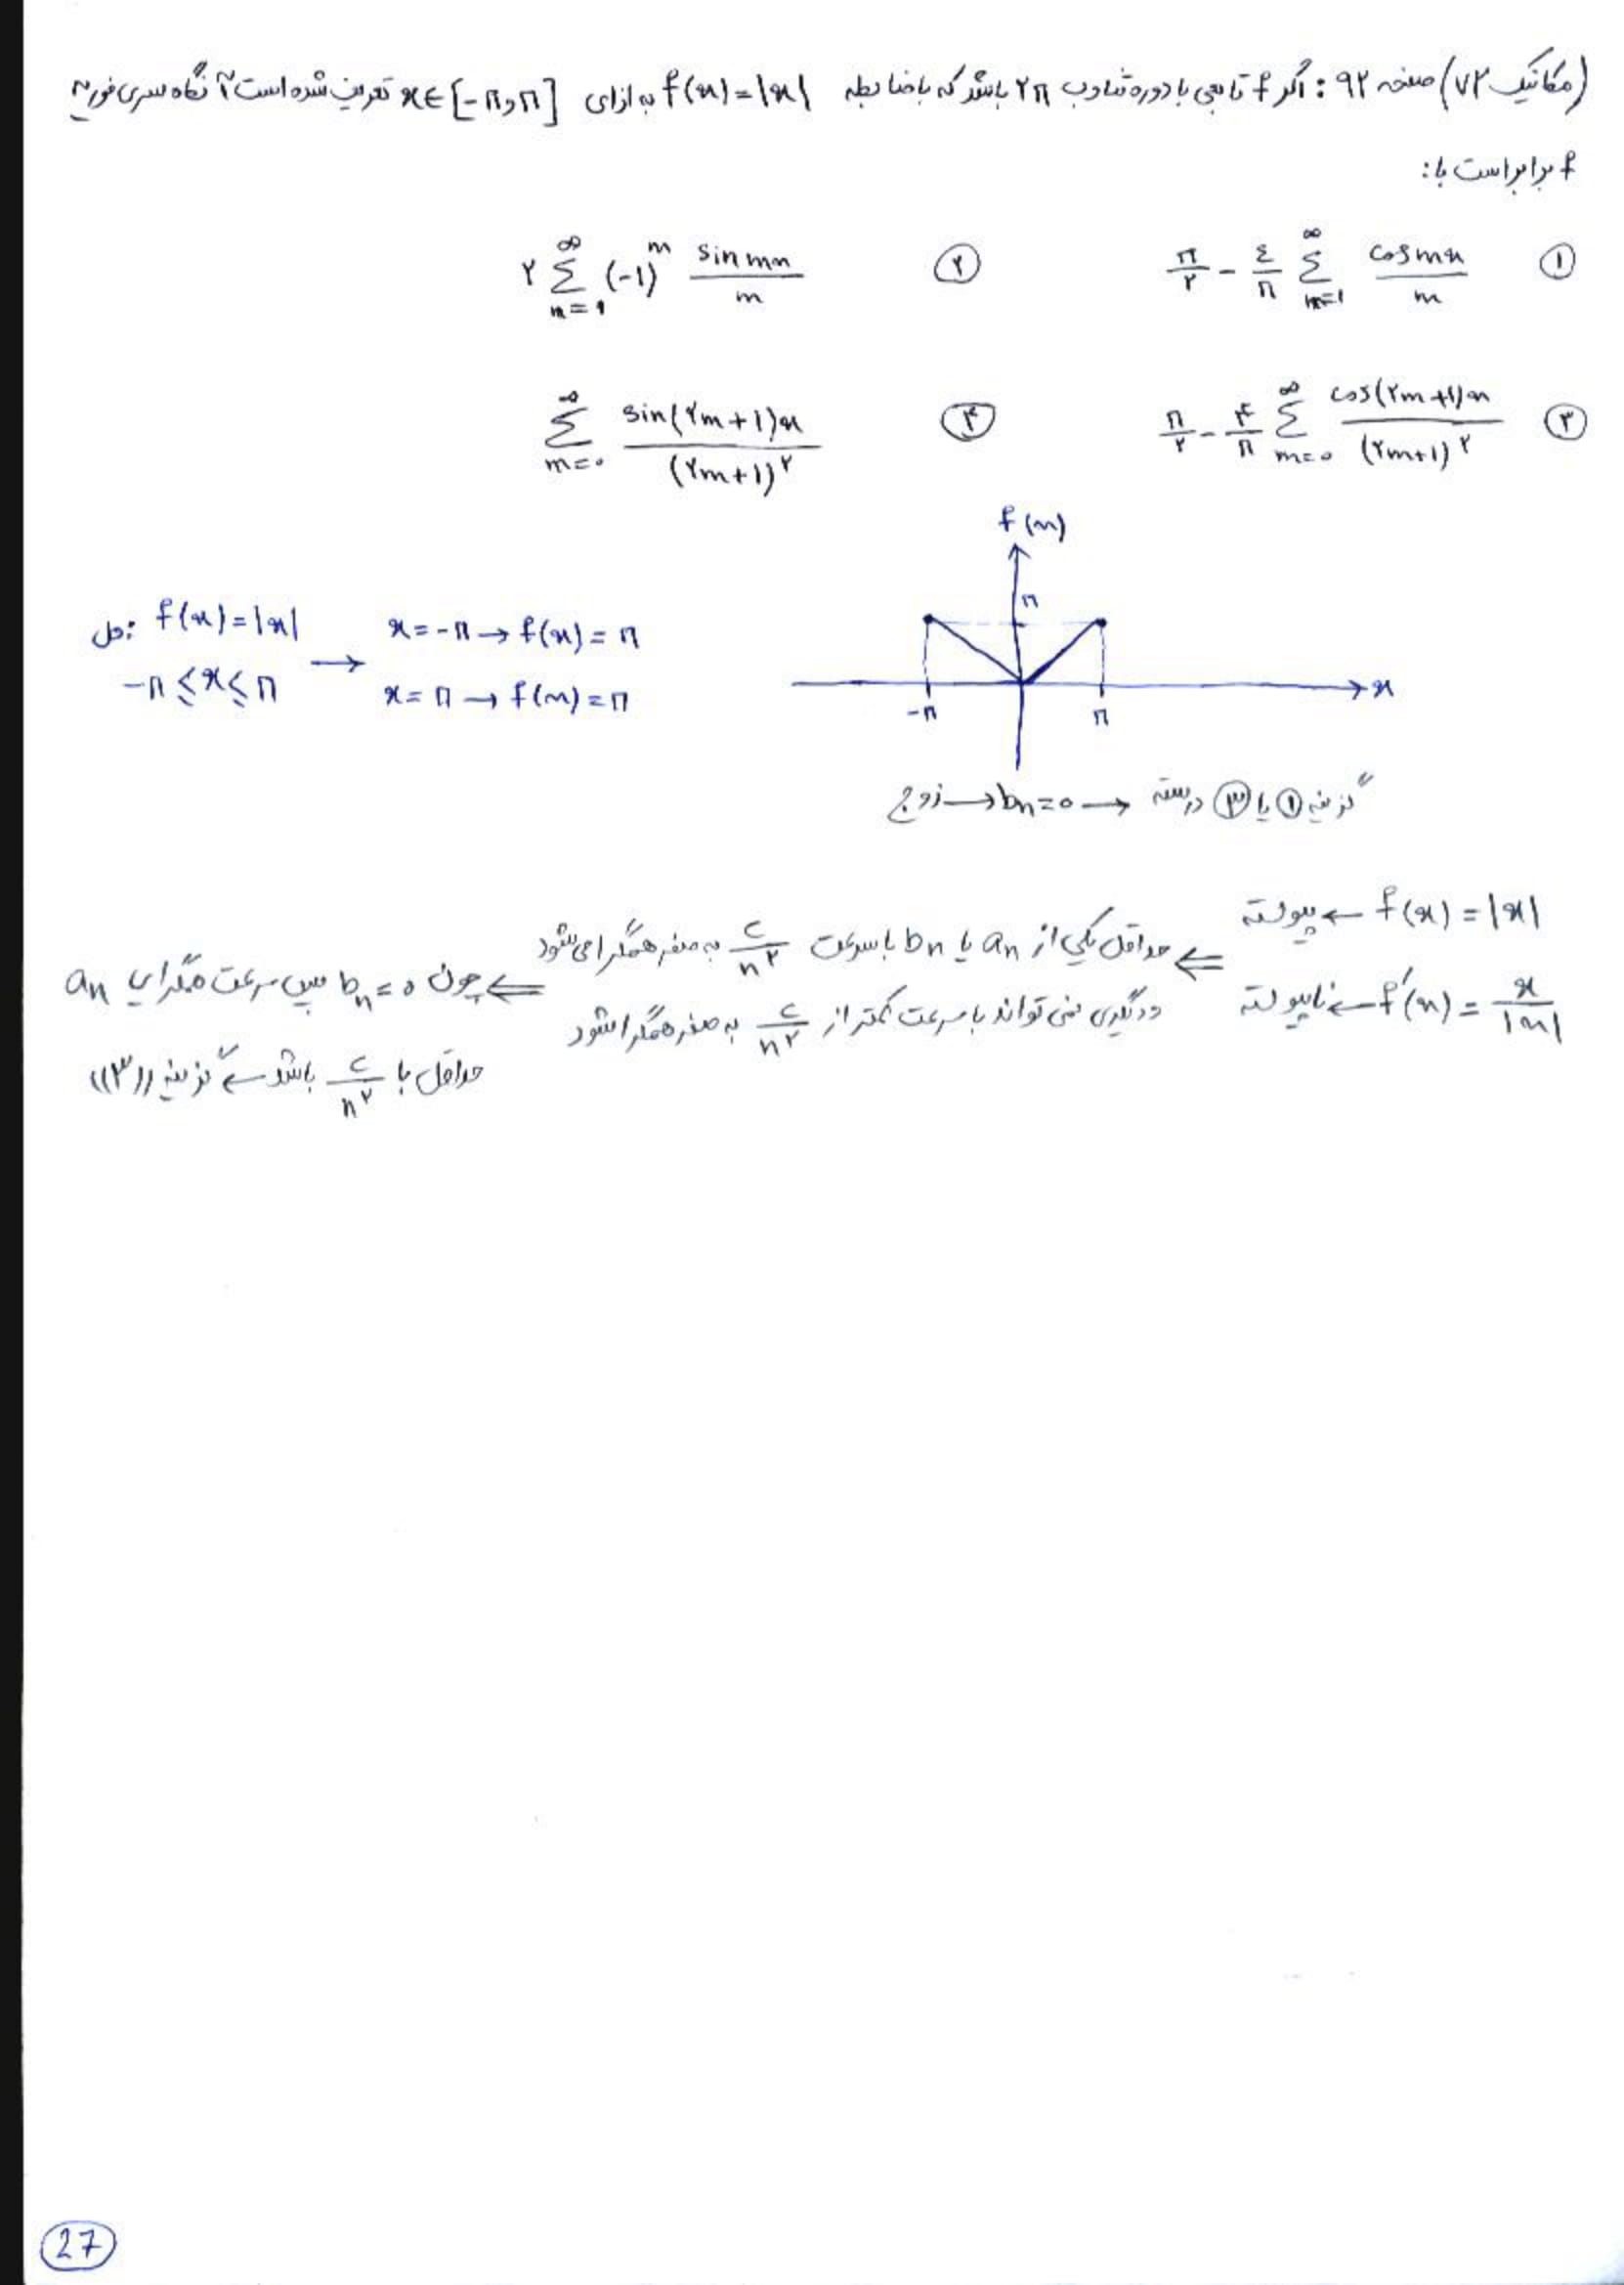 (مکانیک ۷۲) صفحه ۹۲ : اگر f تابعی با دوره تناوب ۲π باشد که با ضابطه f(x)=|x| به ازای x∈[-π,π] تعریف شده است آنگاه سری فوریه
f برابر است با:
① π/۲ - ٤/π Σ_{m=1}^{∞} cos mx / m ② ۲ Σ_{m=1}^{∞} (-1)^m sin mx / m
③ π/۲ - ۴/π Σ_{m=0}^{∞} cos(۲m+1)x / (۲m+1)^۲ ④ Σ_{m=0}^{∞} sin(۲m+1)x / (۲m+1)^۲
f(x)
π
-π π x
حل: f(x)=|x| → x=-π → f(x)=π
-π ≤ x ≤ π x=π → f(x)=π
زوج → bn=0 → گزینه ① یا ③ درسته
f(x)=|x| ← پیوسته
f′(x)= x/|x| ← ناپیوسته
⇐ حداقل یکی از an یا bn با سرعت c/n^۲ به صفر همگرا می‌شود
و دیگری نمی‌تواند با سرعت کمتر از c/n^۲ به صفر همگرا شود
⇐ چون bn=0 پس سرعت همگرایی an
حداقل با c/n^۲ باشد ← گزینه ((۳))
27